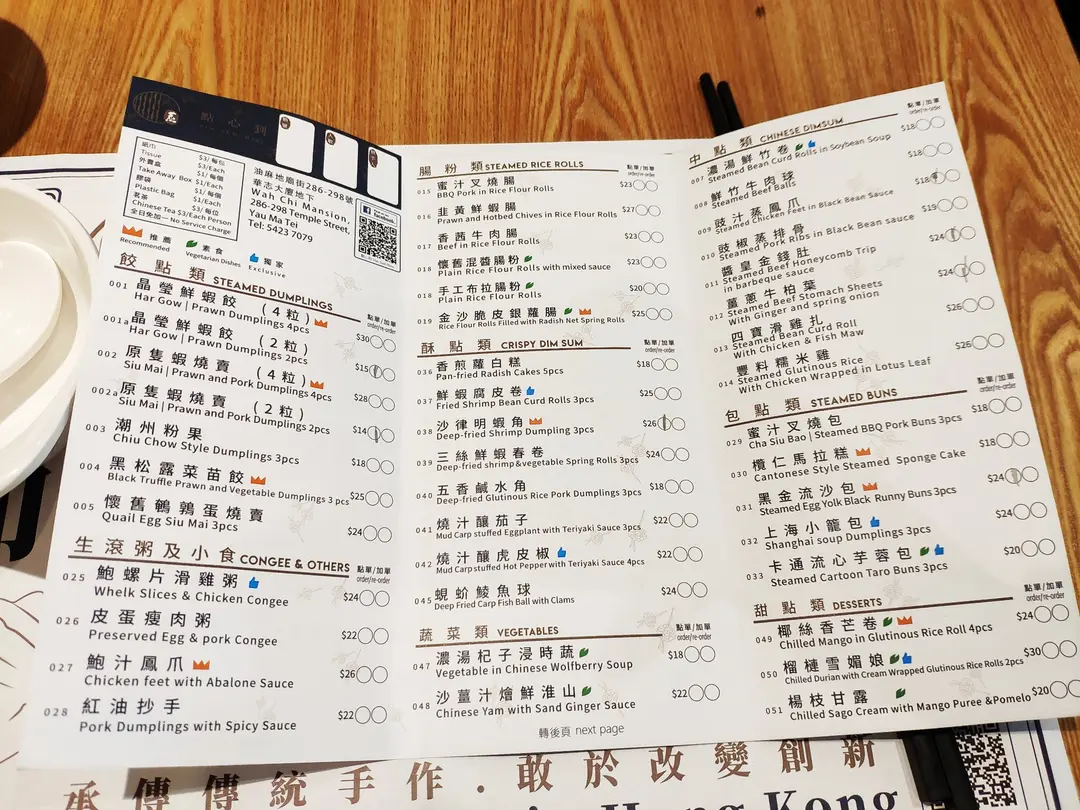 點心到
紙巾 $3/每包
Tissue $3/Each
外賣盒 $1/每個
Take Away Box $1/Each
膠袋 $1/每個
Plastic Bag $1/Each
茗茶 $3/每位
Chinese Tea $3/Each Person
全日免加一 No Service Charge
油麻地廟街286-298號
華志大廈地下
Wah Chi Mansion,
286-298 Temple Street,
Yau Ma Tei
Tel: 5423 7079
推薦
Recommended
素食
Vegetarian Dishes
獨家
Exclusive
餃點類 STEAMED DUMPLINGS
點單/加單
order/re-order
001 晶瑩鮮蝦餃 (4粒)
Har Gow | Prawn Dumplings 4pcs $30
001a 晶瑩鮮蝦餃 (2粒)
Har Gow | Prawn Dumplings 2pcs $15
002 原隻蝦燒賣 (4粒)
Siu Mai | Prawn and Pork Dumplings 4pcs $28
002a 原隻蝦燒賣 (2粒)
Siu Mai | Prawn and Pork Dumplings 2pcs $14
003 潮州粉果
Chiu Chow Style Dumplings 3pcs $18
004 黑松露菜苗餃
Black Truffle Prawn and Vegetable Dumplings 3 pcs $25
005 懷舊鵪鶉蛋燒賣
Quail Egg Siu Mai 3pcs $24
生滾粥及小食 CONGEE & OTHERS
點單/加單
order/re-order
025 鮑螺片滑雞粥
Whelk Slices & Chicken Congee $24
026 皮蛋瘦肉粥
Preserved Egg & pork Congee $22
027 鮑汁鳳爪
Chicken feet with Abalone Sauce $26
028 紅油抄手
Pork Dumplings with Spicy Sauce $22
腸粉類 STEAMED RICE ROLLS
點單/加單
order/re-order
015 蜜汁叉燒腸
BBQ Pork in Rice Flour Rolls $23
016 韭黃鮮蝦腸
Prawn and Hotbed Chives in Rice Flour Rolls $27
017 香茜牛肉腸
Beef in Rice Flour Rolls $23
018 懷舊混醬腸粉
Plain Rice Flour Rolls with mixed sauce $23
018 手工布拉腸粉
Plain Rice Flour Rolls $20
019 金沙脆皮銀蘿腸
Rice Flour Rolls Filled with Radish Net Spring Rolls $25
酥點類 CRISPY DIM SUM
點單/加單
order/re-order
036 香煎蘿白糕
Pan-fried Radish Cakes 5pcs $18
037 鮮蝦腐皮卷
Fried Shrimp Bean Curd Rolls 3pcs $25
038 沙律明蝦角
Deep-fried Shrimp Dumpling 3pcs $26
039 三絲鮮蝦春卷
Deep-fried shrimp&vegetable Spring Rolls 3pcs $24
040 五香鹹水角
Deep-fried Glutinous Rice Pork Dumplings 3pcs $18
041 燒汁釀茄子
Mud Carp stuffed Eggplant with Teriyaki Sauce 3pcs $22
042 燒汁釀虎皮椒
Mud Carp stuffed Hot Pepper with Teriyaki Sauce 4pcs $22
045 蜆蚧鯪魚球
Deep Fried Carp Fish Ball with Clams $24
蔬菜類 VEGETABLES
點單/加單
order/re-order
047 濃湯杞子浸時蔬
Vegetable in Chinese Wolfberry Soup $18
048 沙薑汁燴鮮淮山
Chinese Yam with Sand Ginger Sauce $22
轉後頁 next page
中點類 CHINESE DIMSUM
點單/加單
order/re-order
007 濃湯鮮竹卷
Steamed Bean Curd Rolls in Soybean Soup $18
008 鮮竹牛肉球
Steamed Beef Balls $18
009 豉汁蒸鳳爪
Steamed Chicken Feet in Black Bean Sauce $18
010 豉椒蒸排骨
Steamed Pork Ribs in Black Bean sauce $19
011 醬皇金錢肚
Steamed Beef Honeycomb Trip
in barbeque sauce $24
012 薑蔥牛柏葉
Steamed Beef Stomach Sheets
With Ginger and spring onion $24
013 四寶滑雞扎
Steamed Bean Curd Roll
With Chicken & Fish Maw $26
014 豐料糯米雞
Steamed Glutinous Rice
With Chicken Wrapped in Lotus Leaf $26
包點類 STEAMED BUNS
點單/加單
order/re-order
029 蜜汁叉燒包
Cha Siu Bao | Steamed BBQ Pork Buns 3pcs $18
030 欖仁馬拉糕
Cantonese Style Steamed Sponge Cake $18
031 黑金流沙包
Steamed Egg Yolk Black Runny Buns 3pcs $24
032 上海小籠包
Shanghai soup Dumplings 3pcs $24
033 卡通流心芋蓉包
Steamed Cartoon Taro Buns 3pcs $20
甜點類 DESSERTS
點單/加單
order/re-order
049 椰絲香芒卷
Chilled Mango in Glutinous Rice Roll 4pcs $24
050 榴槤雪媚娘
Chilled Durian with Cream Wrapped Glutinous Rice Rolls 2pcs $30
051 楊枝甘露
Chilled Sago Cream with Mango Puree &Pomelo $20
承傳傳統手作．敢於改變創新
in Hong Kong